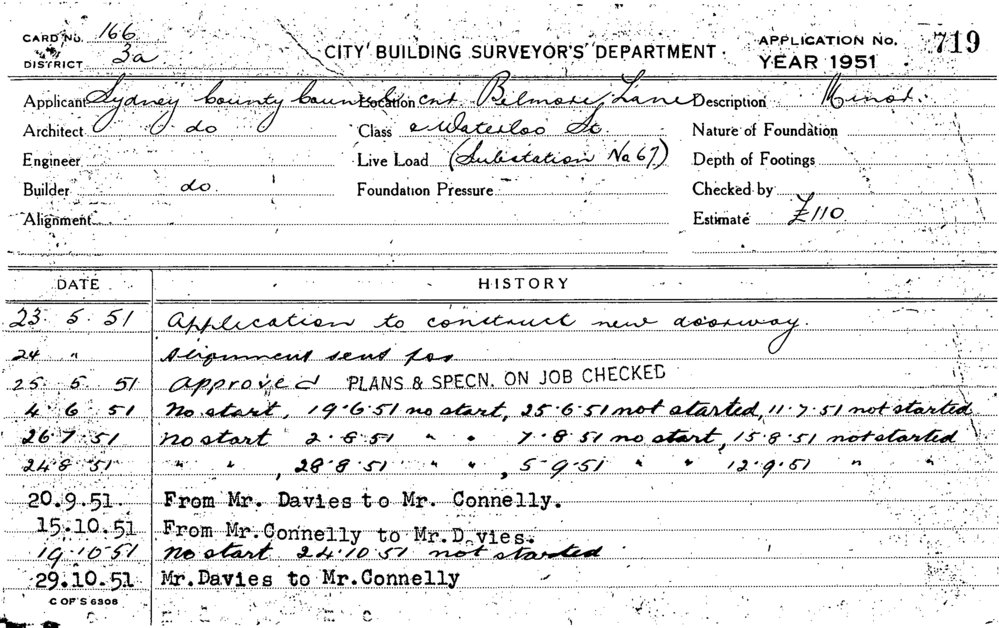 CARD No. 166
DISTRICT 3a
CITY BUILDING SURVEYOR'S DEPARTMENT.
APPLICATION No. 719
YEAR 1951
Applicant Sydney County Council Location cnr Belmore Lane Description Minor.
Architect do Class & Waterloo St. Nature of Foundation
Engineer Live Load (Substation No 67) Depth of Footings
Builder do. Foundation Pressure Checked by
Alignment Estimate £110
DATE HISTORY
23. 5. 51 Application to construct new doorway.
24 " Alignment sent for
25. 5. 51 Approved PLANS & SPECN. ON JOB CHECKED
4. 6. 51 No start, 19.6.51 no start, 25.6.51 not started, 11.7.51 not started
26.7.51 No start 2.8.51 " " 7.8.51 no start, 15.8.51 not started
24.8.51 " " , 28.8.51 " " , 5.9.51 " " 12.9.51 " "
20.9.51. From Mr. Davies to Mr. Connelly.
15.10.51 From Mr.Connelly to Mr.D vies.
19.10.51 No start 24.10.51 not started
29.10.51 Mr.Davies to Mr.Connelly
C OF S 6306